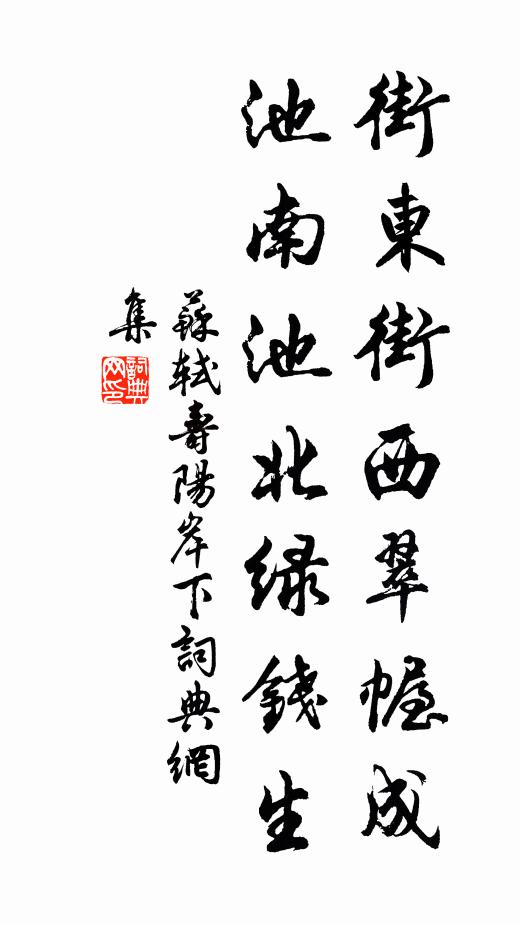 街東街西翠幄成
池南池北綠錢生
蘇軾壽陽岸下詞典網
集
詞典
网印